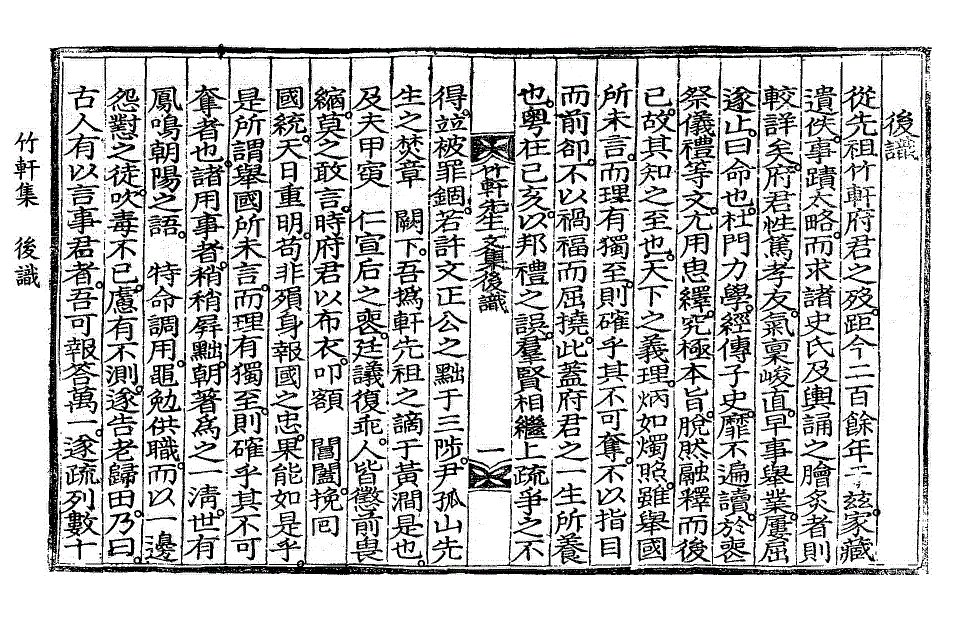 後識
從先祖竹軒府君之歿距今二百餘年于玆家藏
遺佚事蹟太略而求諸史氏及輿誦之膾炙者則
較詳矣府君性篤孝友氣稟峻直早事擧業屢屈
遂止曰命也杜門力學經傳子史靡不遍讀於喪
祭儀禮等文尤用思繹究極本旨脫然融釋而後
已故其知之至也天下之義理炳如燭照雖擧國
所未言而理有獨至則確乎其不可奪不以指目
而前卻不以禍福而屈撓此蓋府君之一生所養
也粤在己亥以邦禮之誤羣賢相繼上疏爭之不
竹軒先生文集後識 一
得並被罪錮若許文正公之黜于三陟尹孤山先
生之焚章 闕下吾撝軒先祖之謫于黃澗是也
及夫甲寅 仁宣后之喪廷議復乖人皆懲前畏
縮莫之敢言時府君以布衣叩額 閶闔挽回
國統天日重明苟非殞身報國之忠果能如是乎
是所謂擧國所未言而理有獨至則確乎其不可
奪者也諸用事者稍稍屛黜朝著爲之一淸世有
鳳鳴朝陽之語 特命調用黽勉供職而以一邊
怨懟之徒吹毒不已慮有不測遂告老歸田乃曰
古人有以言事君者吾可報答萬一遂疏列數十
竹軒集 後識